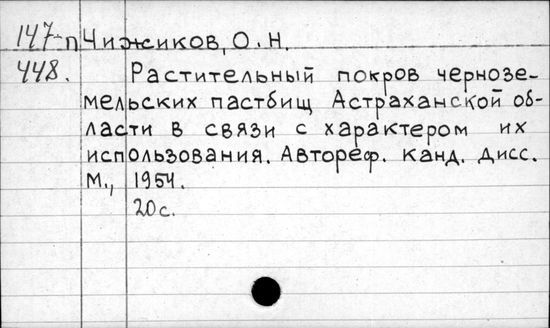 147-п Чижиков, О. Н.
448. Растительный покров чернозе-
мельских пастбищ Астраханской об-
ласти в связи с характером их
использования. Автореф. канд. дисс.
М., 1954.
20 с.